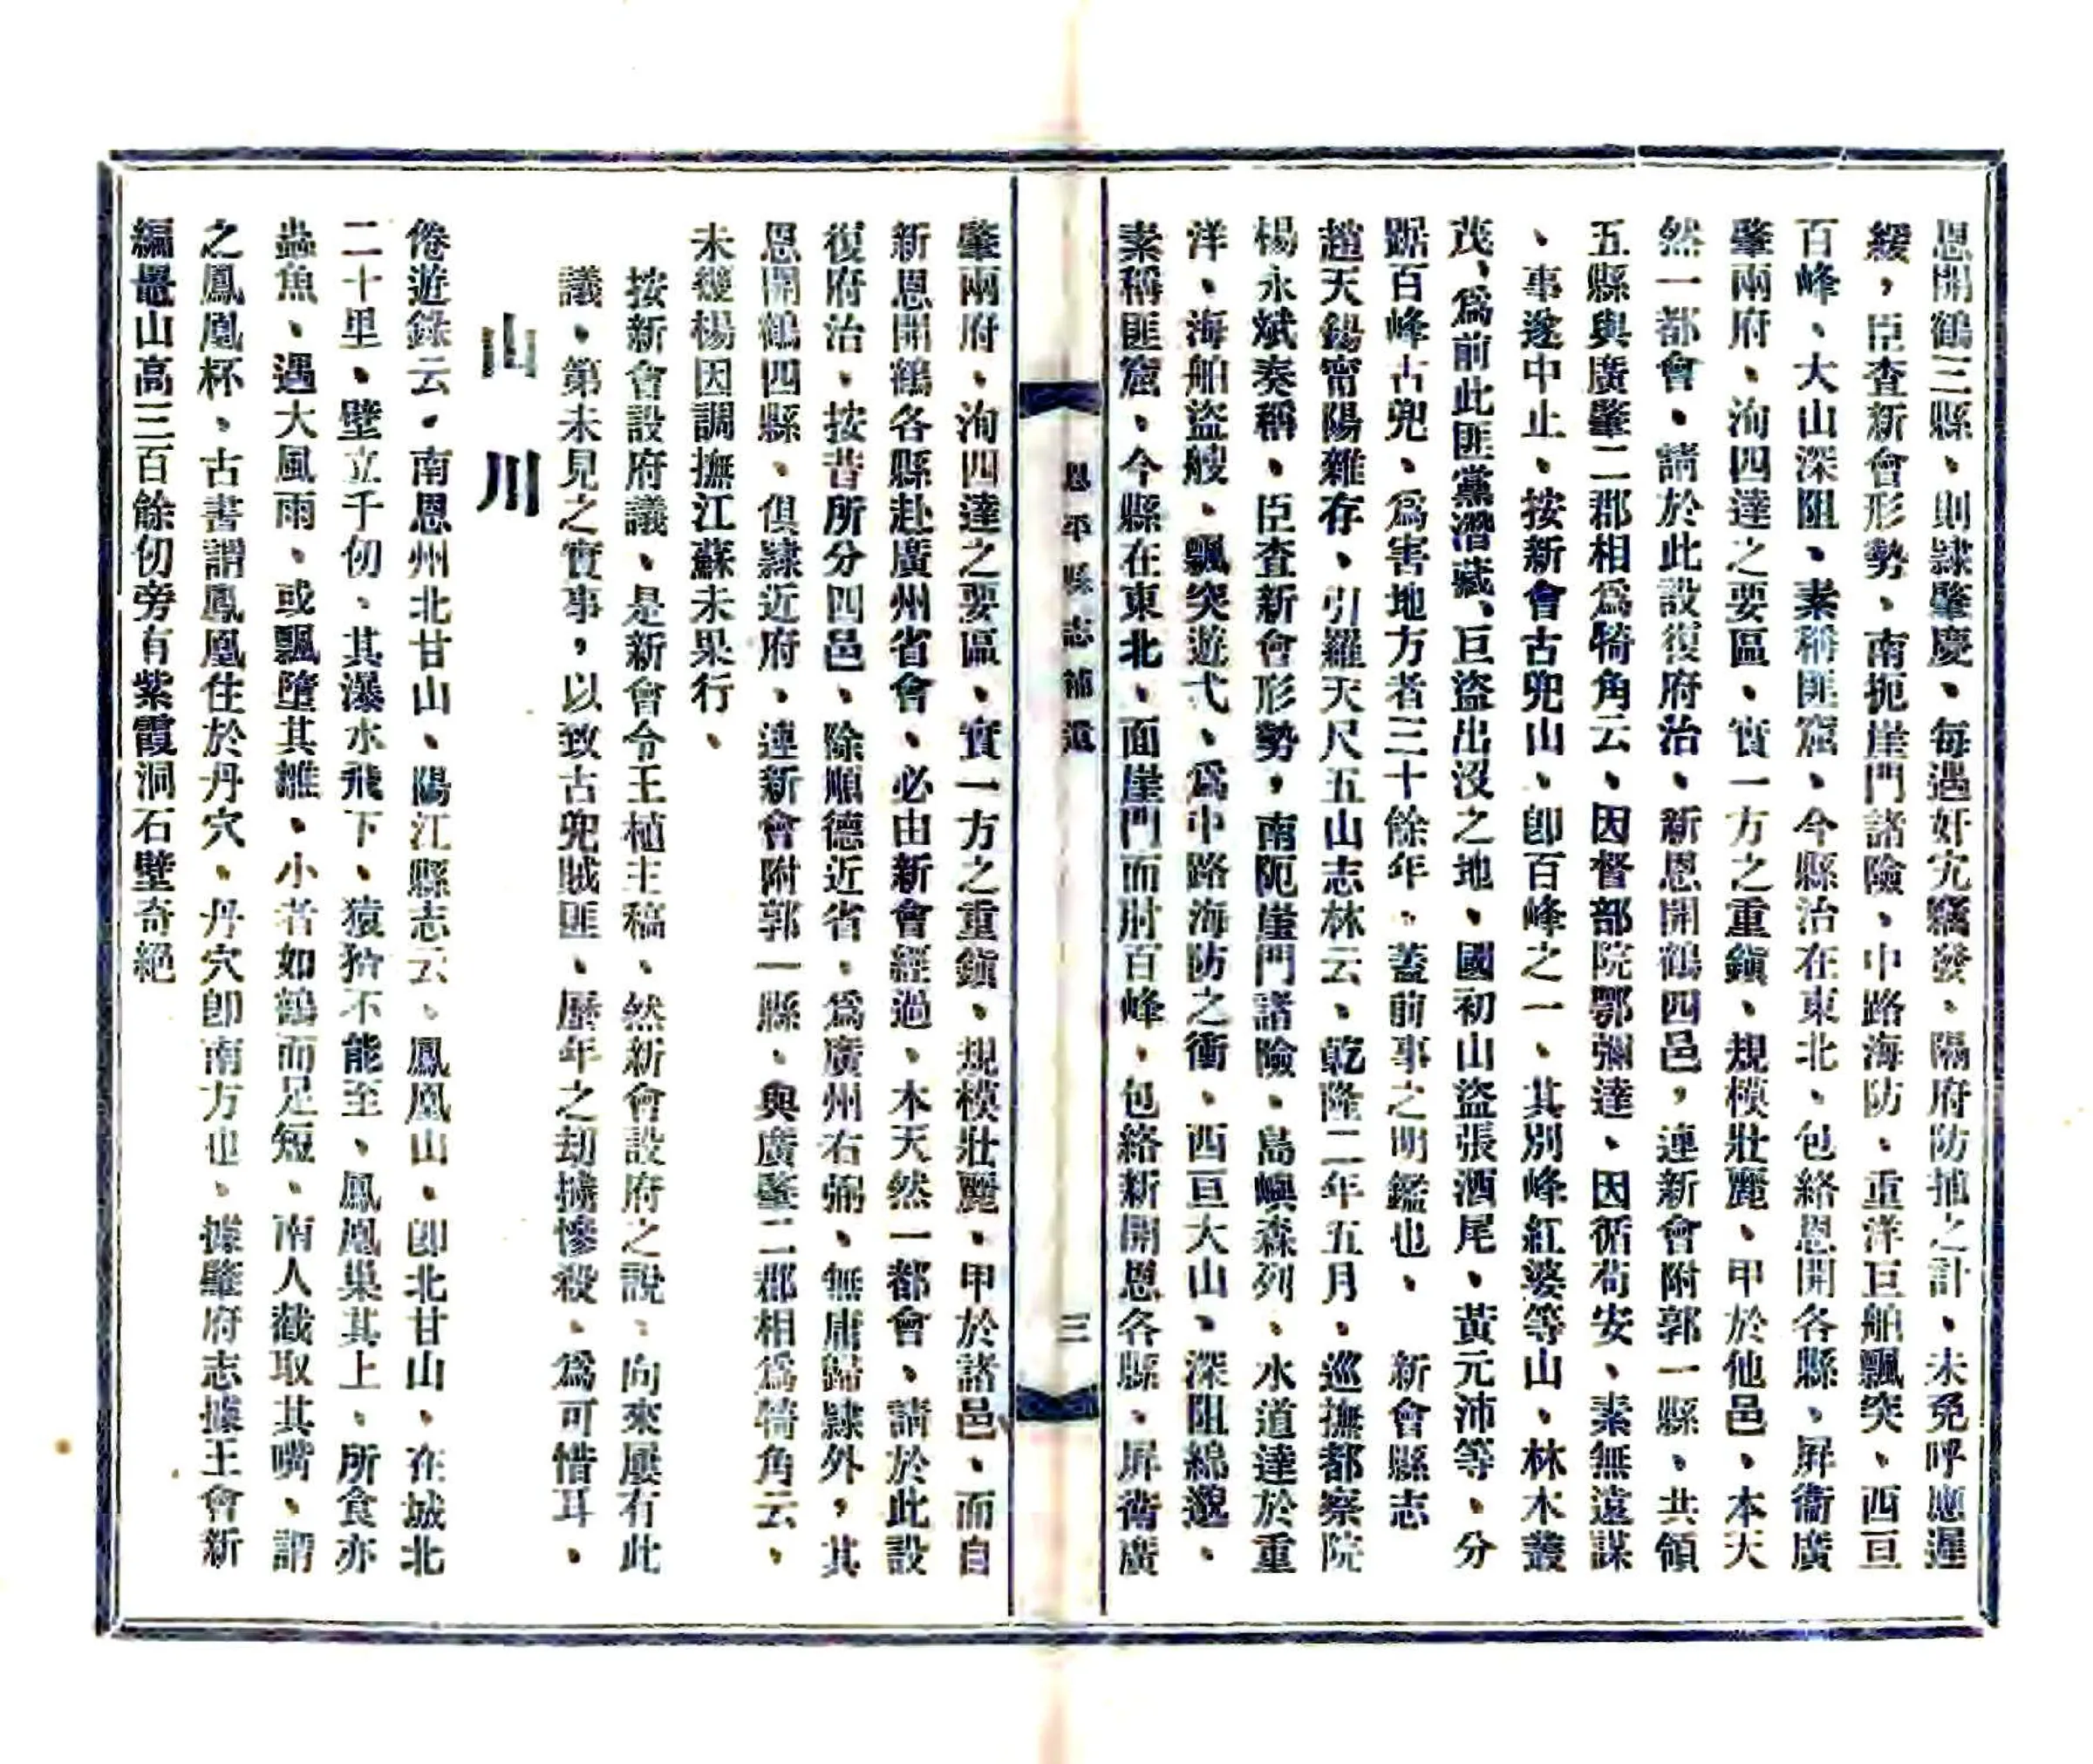 恩開鶴三縣、則隸肇慶、每遇奸宄竊發、隔府防捕之計、未免呼應遲
緩，臣查新會形勢、南扼崖門諸險、中路海防、重洋巨舶飄突、西亘
百峰、大山深阻、素稱匪窟、今縣治在東北、包絡恩開各縣、屏衞廣
肇兩府、洵四達之要區、實一方之重鎮、規模壯麗、甲於他邑、本天
然一都會、請於此設復府治、新恩開鶴四邑，連新會附郭一縣、共領
五縣與廣肇二郡相爲犄角云、因督部院鄂彌達、因循苟安、素無遠謀
、事遂中止、按新會古兜山、卽百峰之一、其別峰紅婆等山、林木叢
茂、爲前此匪黨潛藏、巨盜出沒之地、國初山盜張酒尾、黃元沛等、分
踞百峰古兜、爲害地方者三十餘年、蓋前事之明鑑也、　新會縣志
趙天錫甯陽雜存、引羅天尺五山志林云、乾隆二年五月、巡撫都察院
楊永斌奏稱、臣查新會形勢，南阨崖門諸險、島嶼森列、水道達於重
洋、海舶盜艘、飄突遊弋、爲中路海防之衝、西亘大山、深阻綿邈、
素稱匪窟、今縣在東北、面崖門而肘百峰、包絡新開恩各縣、屏衞廣
恩平縣志補遺　三
肇兩府、洵四達之要區、實一方之重鎮、規模壯麗、甲於諸邑、而自
新恩開鶴各縣赴廣州省會、必由新會經過、本天然一都會、請於此設
復府治、按昔所分四邑、除順德近省、爲廣州右弼、無庸歸隸外，其
恩開鶴四縣、俱隸近府、連新會附郭一縣、與廣肇二郡相爲犄角云、
未幾楊因調撫江蘇未果行、
按新會設府議、是新會令王植主稿、然新會設府之說、向來屢有此
議、第未見之實事，以致古兜賊匪、歷年之劫擄慘殺、爲可惜耳、
山川
倦遊錄云、南恩州北甘山、陽江縣志云、鳳凰山、卽北甘山、在城北
二十里、壁立千仞、其瀑水飛下、猿狖不能至、鳳凰巢其上、所食亦
蟲魚、遇大風雨、或飄墮其雛、小者如鶴而足短、南人截取其嘴、謂
之鳳凰杯、古書謂鳳凰住於丹穴、丹穴卽南方也、據肇府志據王會新
編最山高三百餘仞旁有紫霞洞石壁奇絕